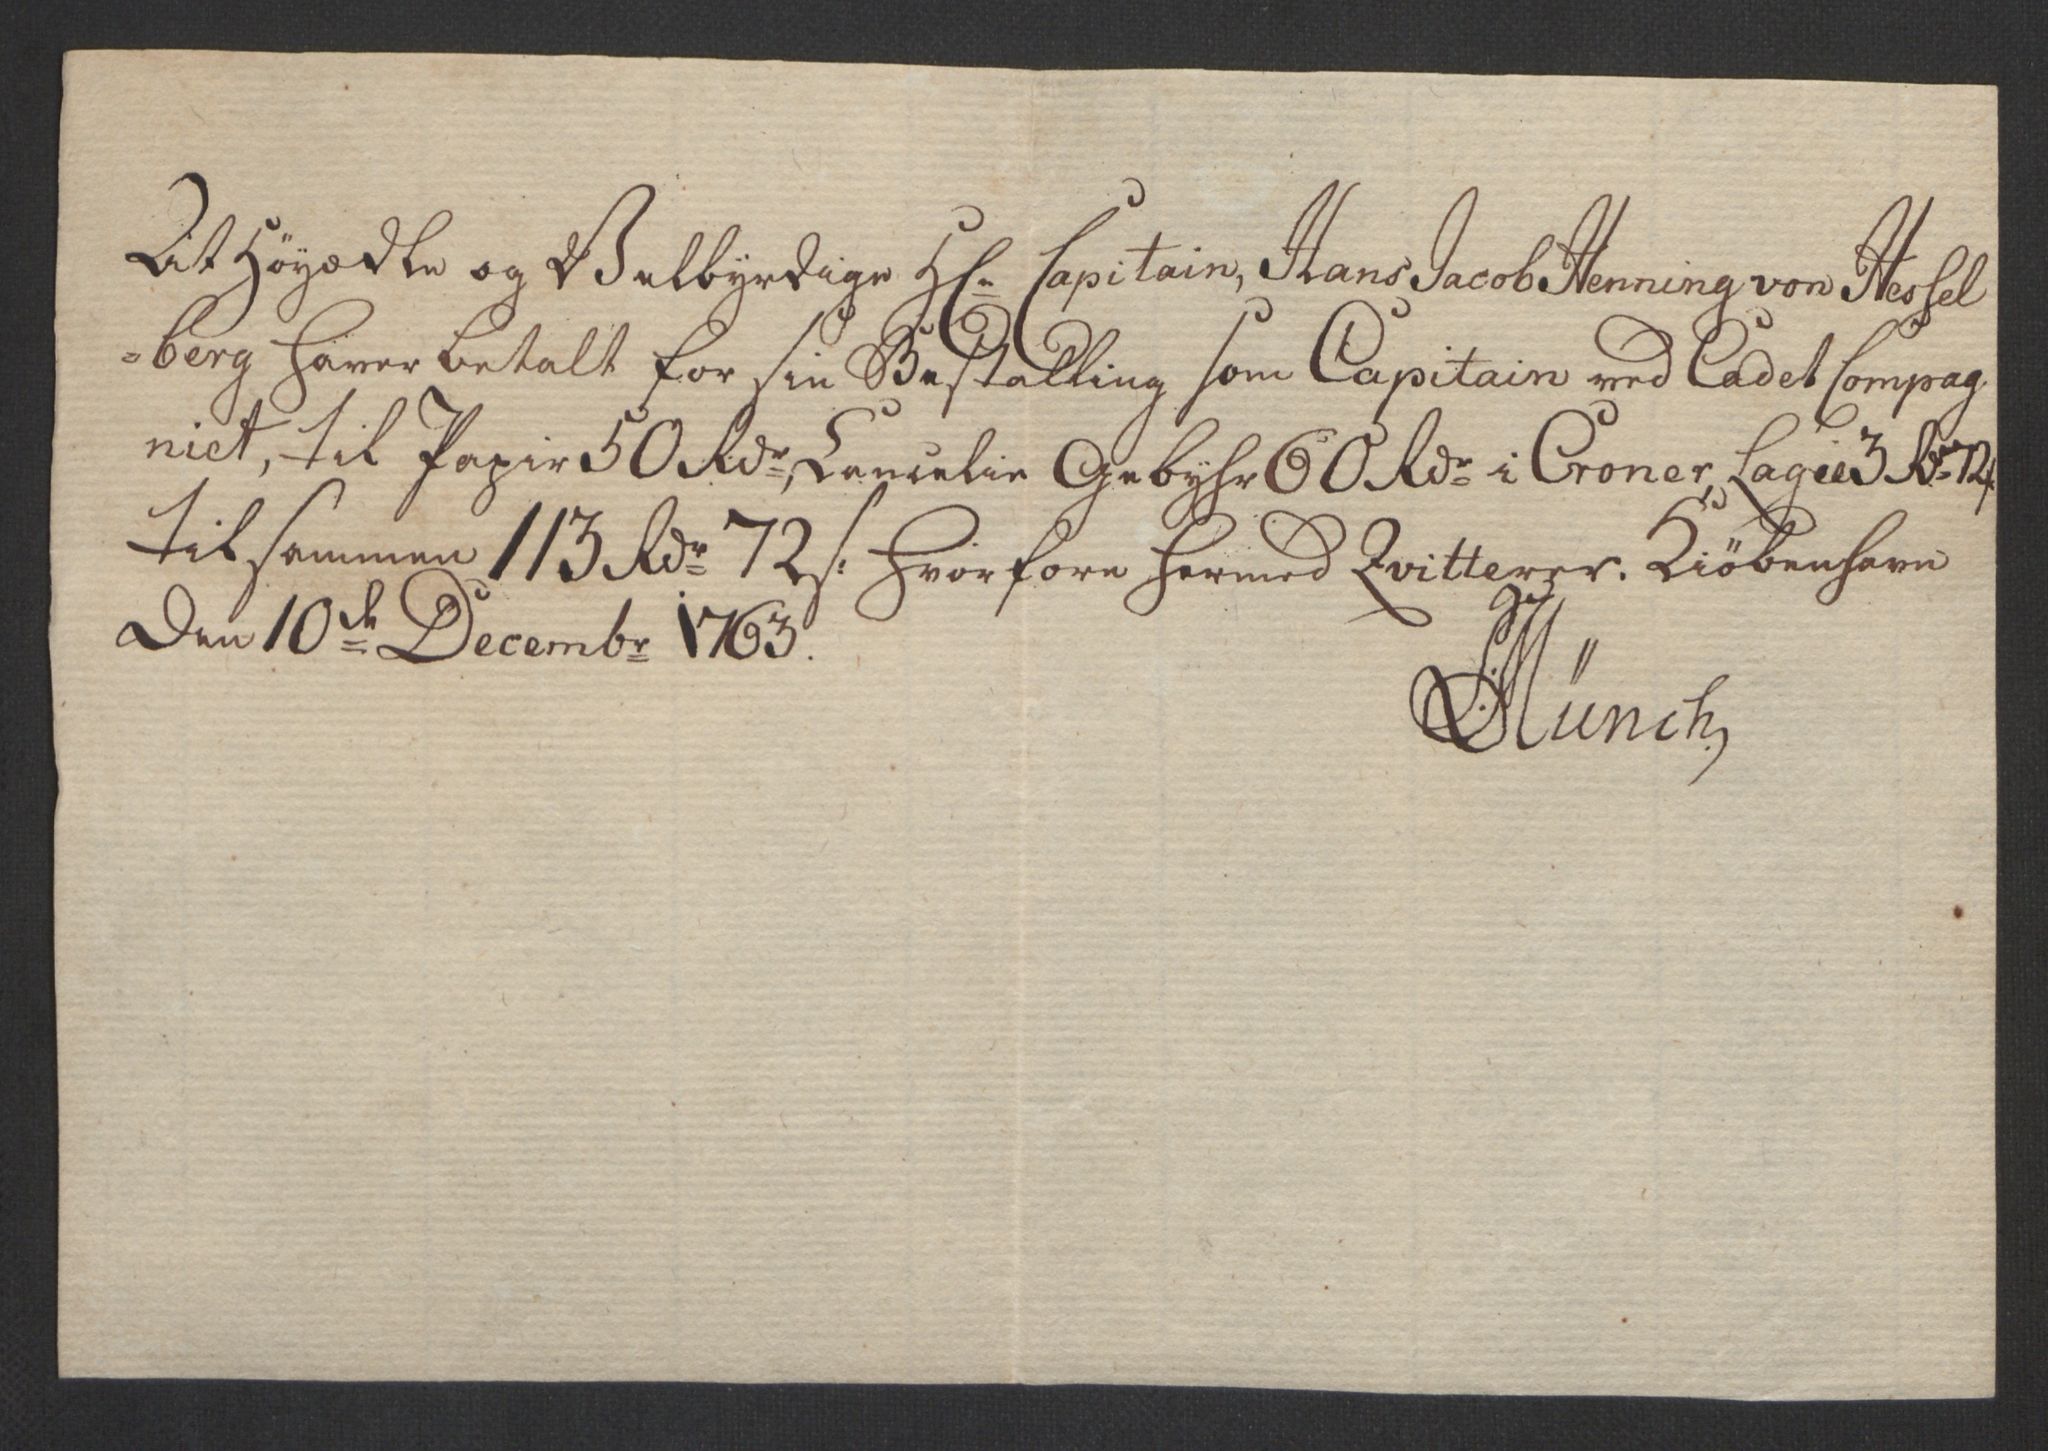 At Höyædle og Velbyrdige Hr. Capitain, Hans Jacob Henning von Hessel
=berg haver betalt for sin Bestalling som Capitain ved Cadet Compag
niet, til Papir 50 Rdr, Cancelie Gebyhr 60 Rdr i Croner, Lagie 3 Rdr 72 s.
tilsammen 113 Rdr 72 s: hvorfore hermed Qvitterer. Kiöbenhavn
Den 10de Decembr 1763.
Münch